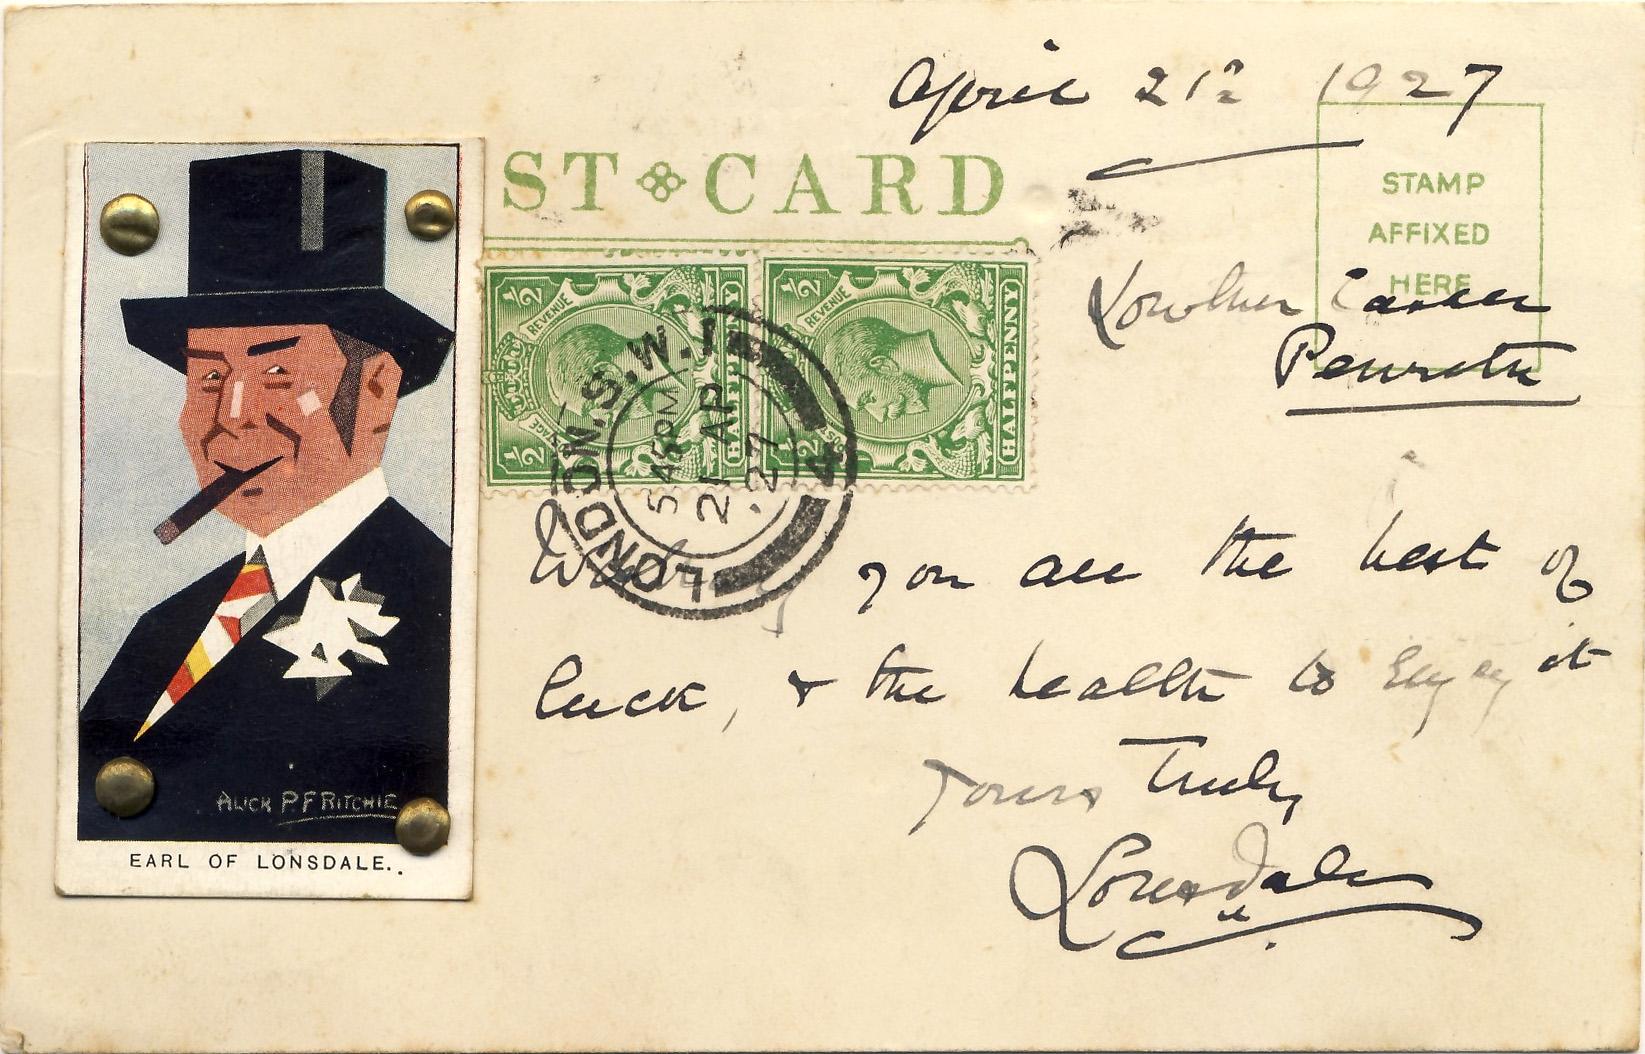 April 21st 1927
ST CARD
STAMP
AFFIXED
HERE
Lowther Castle
Penrith
½ REVENUE ½ POSTAGE HALFPENNY
½ REVENUE ½ POSTAGE HALFPENNY
LONDON. S.W.1
5.45PM
21 AP
.27
4
Wishing you all the best of
luck, & the health to Enjoy it
Yours Truly
Lonsdale
ALICK P.F RITCHIE
EARL OF LONSDALE..